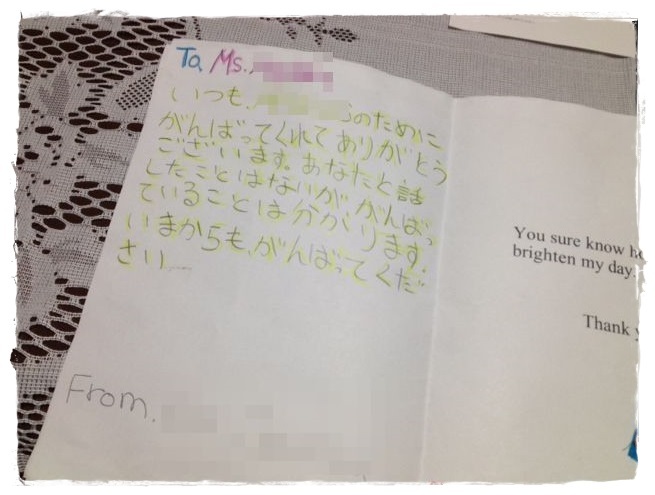 To, Ms.
いつも、 のために
がんばってくれてありがとう
ございます。あなたと話
したことはないが がんばっ
ていることは分かります。
いまからも、がんばってくだ
さい
From.
You sure know
brighten my day.
Thank